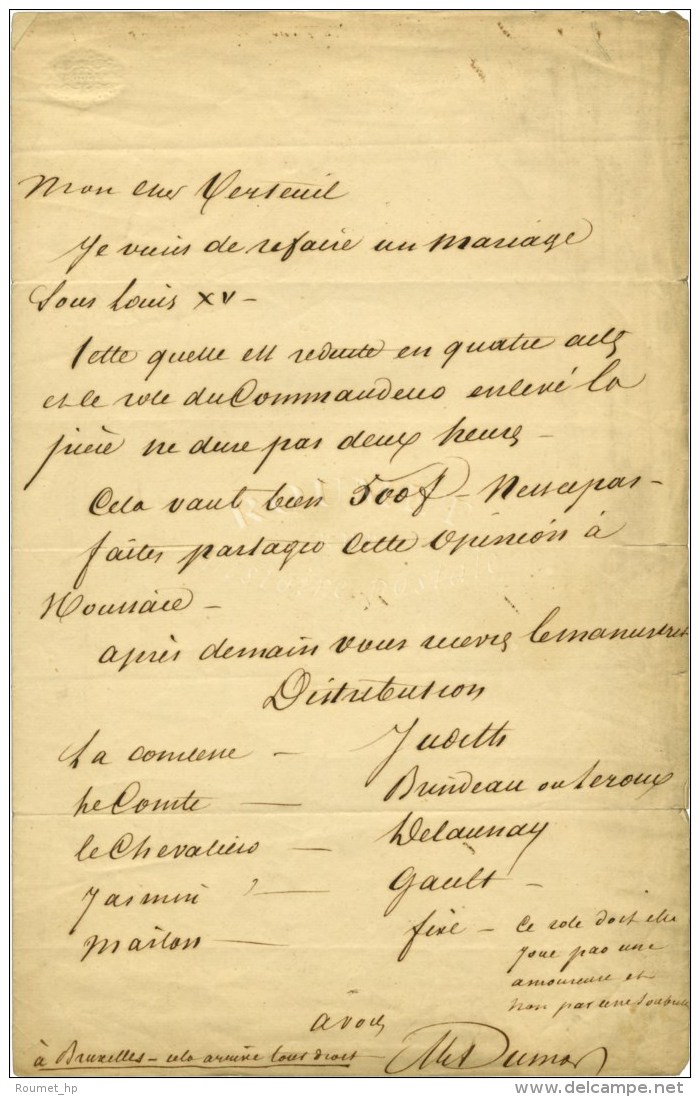 Mon cher Verteuil
Je viens de refaire un Mariage
Sous Louis XV –
Telle quelle est reduite en quatre actes
et le role du Commandeur enlevé la
piece ne dure pas deux heures –
Cela vaut bien 500 f – Nessepas –
faites partager cette opinion à
Houssaie –
après demain vous recevres le manuscrit
Distribution
La comtesse — Judith
Le Comte — Brindeau ou Leroux
le Chevalier — Delaunay
Jasmin — Gault –
Marton — fixe – Ce role doit etre
joué par une
amoureuse et
non par une soubrette
à vous
à Bruxelles – cela arrive tout droit – Alex Dumas
Roumet_hp